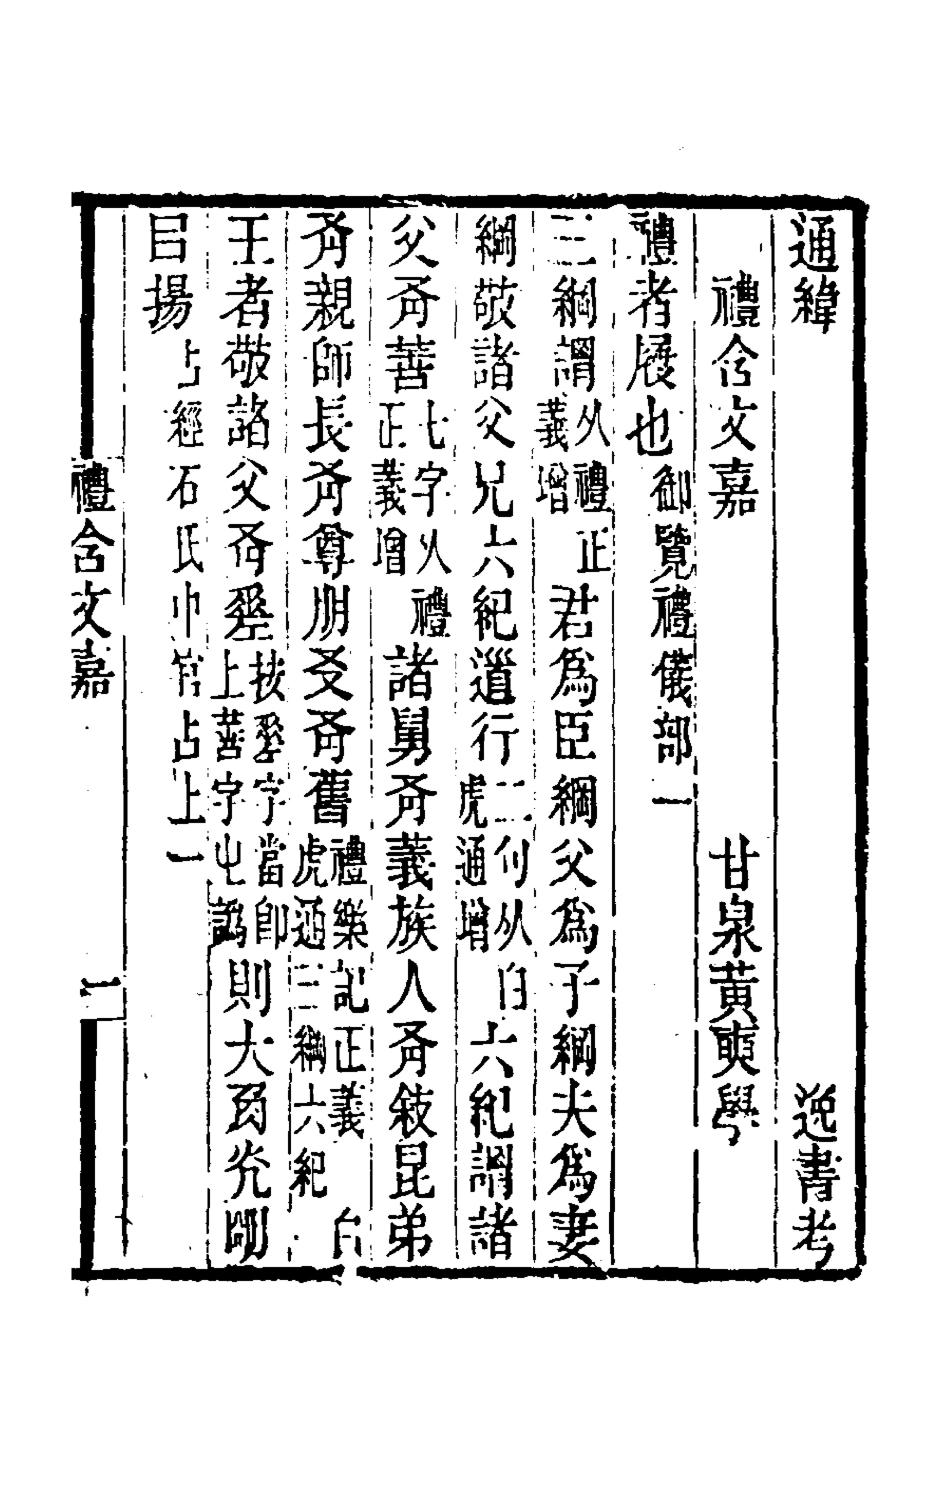 通緯　逸書考
禮含文嘉　甘泉黃奭學
禮者履也御覽禮儀部一
三綱謂從禮正義增君爲臣綱父爲子綱夫爲妻
綱敬諸父兄六紀道行二句從白虎通增六紀謂諸
父有善七字从禮正義增諸舅有義族人有敍昆弟
有親師長有尊朋友有舊禮樂記正義　白虎通三綱六紀
王者敬諸父有㘴按㘴字當卽上善字也譌則大角光明
曰揚占經石氏中官占上一
禮含文嘉　一